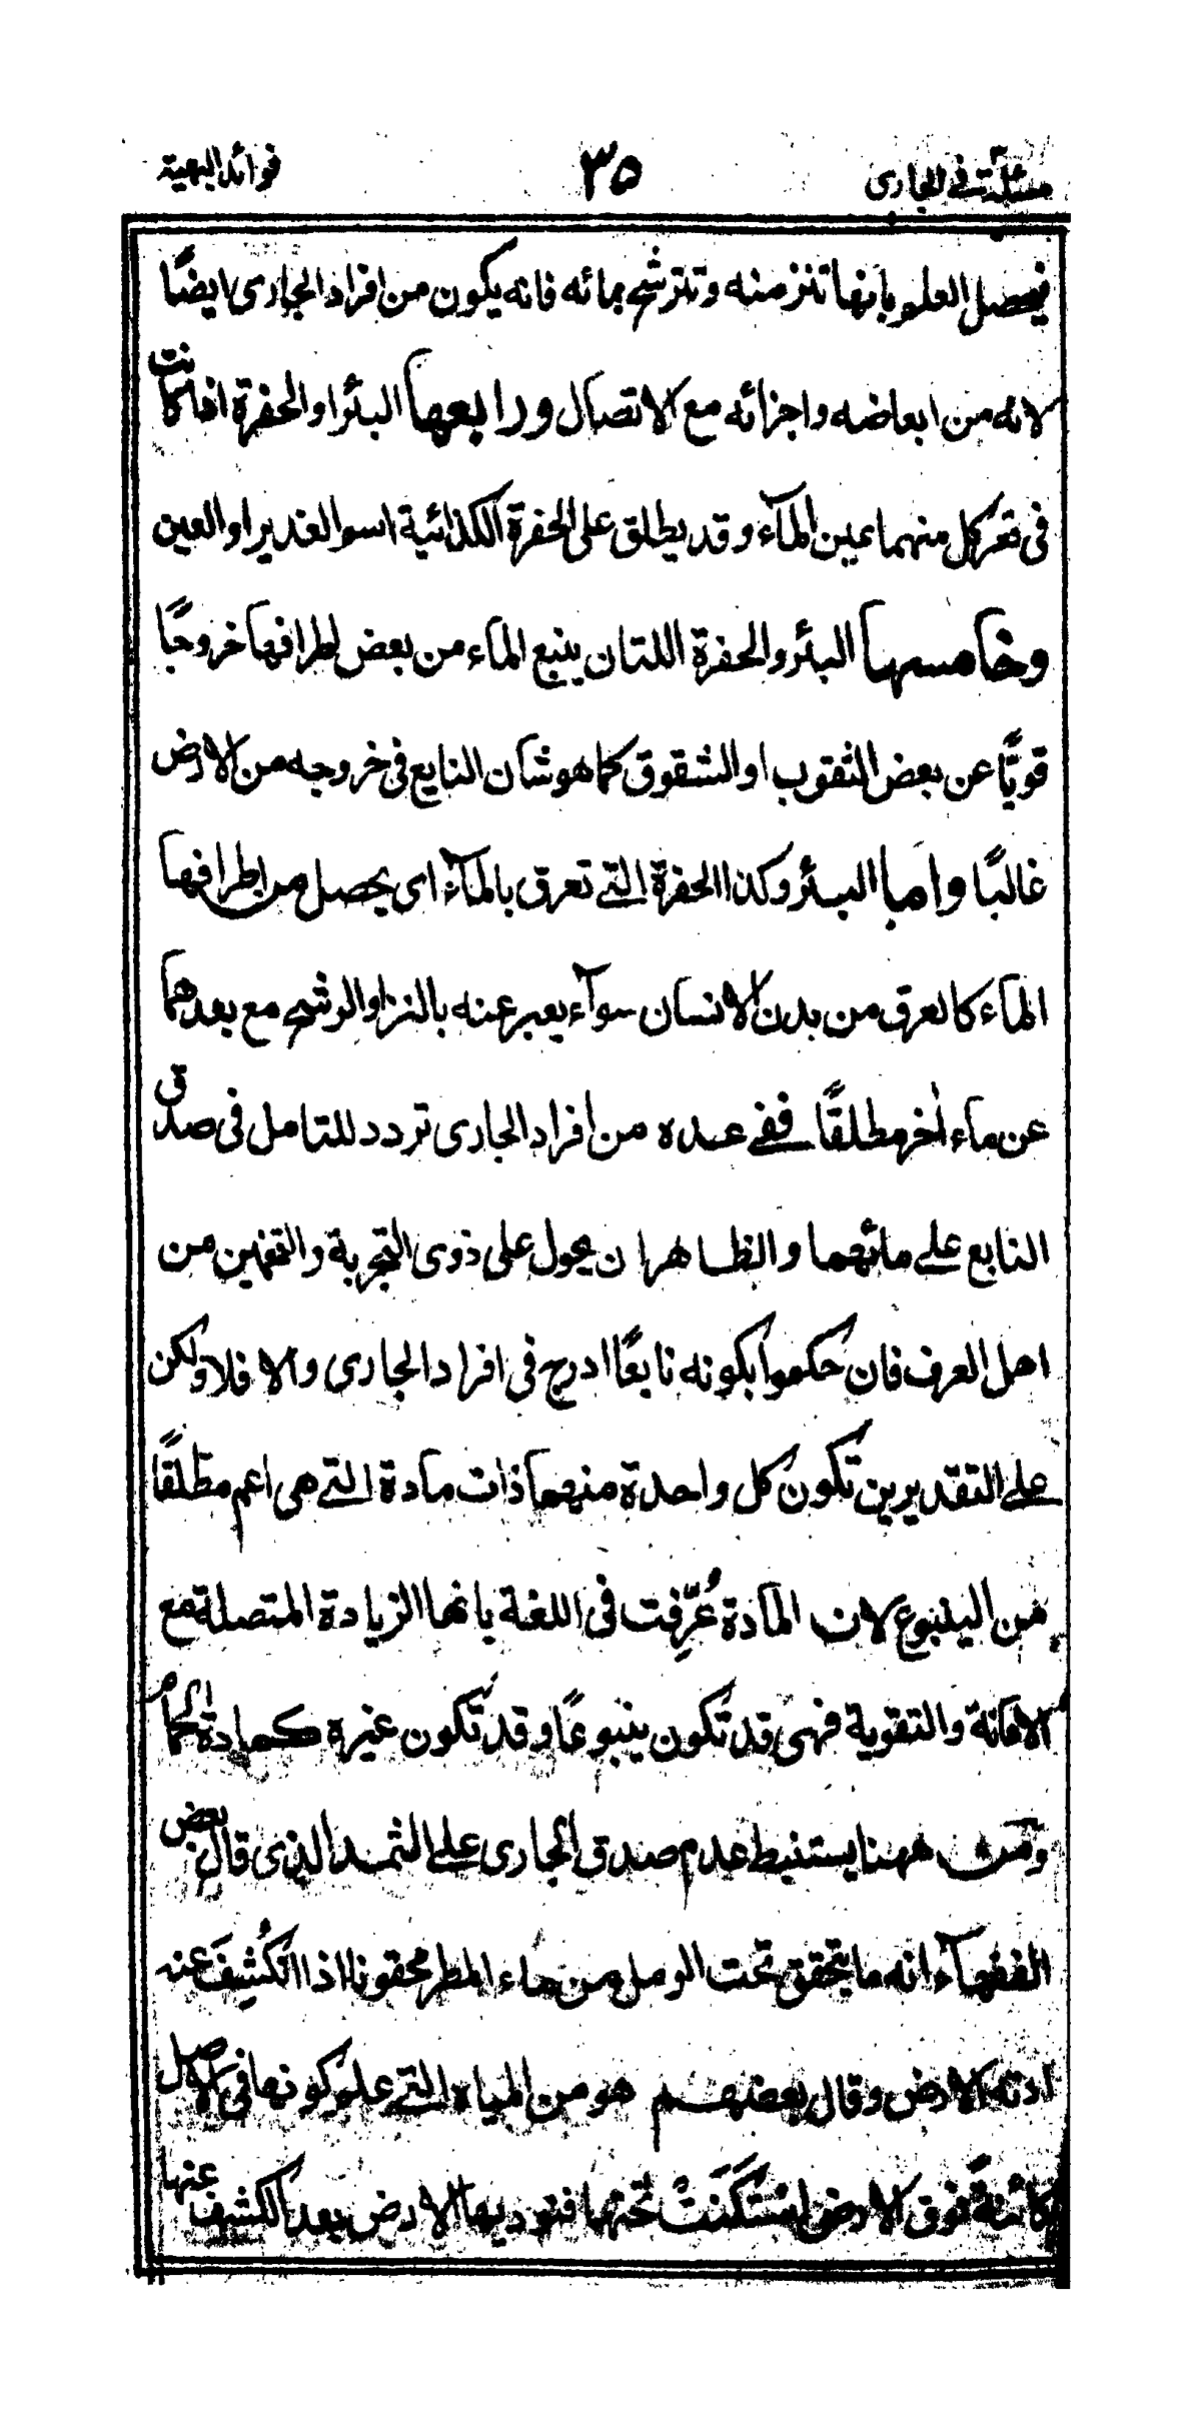 مسئلة في الجاری
۳۵
فوائد البهية
فيحصل العلم بانها تنز منه وتترشح بمائه فانه يكون من افراد الجاری ايضًا
لانه من ابعاضه واجزائه مع الاتصال ورابعها البئر او الحفرة اذا كانت
فی قعر كل منهما عين المآء وقد يطلق على الحفرة الكذائية اسم الغدير او العين
وخامسها البئر والحفرة اللتان ينبع الماء من بعض اطرافها خروجًا
قويًّا عن بعض الثقوب او الشقوق كما هو شان النابع فی خروجه من الارض
غالبًا واما البئر وكذا الحفرة التے تعرق بالمآء ای يحصل من اطرافها
الماء كالعرق من بدن الانسان سوآء يعبر عنه بالنز او الرشح مع بعدهما
عن ماء اٰخر مطلقًا ففے عده من افراد الجاری تردد للتامل فی صدق
النابع علے مائهما والظاهر ان يحول علی ذوی التجربة والتفهين من
اهل العرف فان حكموا بكونه نابعًا ادرج فی افراد الجاری والا فلا ولكن
علے التقديرين تكون كل واحدة منهما ذات مادة التے هی اعم مطلقًا
من الينبوع لان المادة عُرِّفت فی اللغة بانها الزيادة المتصلة مع
الاعانة والتقوية فهی قد تكون ينبوعًا وقد تكون غيره كمادة الحمام
ومن ههنا يستنبط عدم صدق الجاری علے الثمد الذی قال بعض
الفقهآء انه ما يتحقق تحت الرمل من ماء المطر محقونا اذا انكُشِفَ عنه
ادته الارض وقال بعضهم هو من المياه التے علم كونها فی الاصل
كائنةً فوق الارض استكَنَتْ تحتها فتوديها الارض بعد الكشف عنها